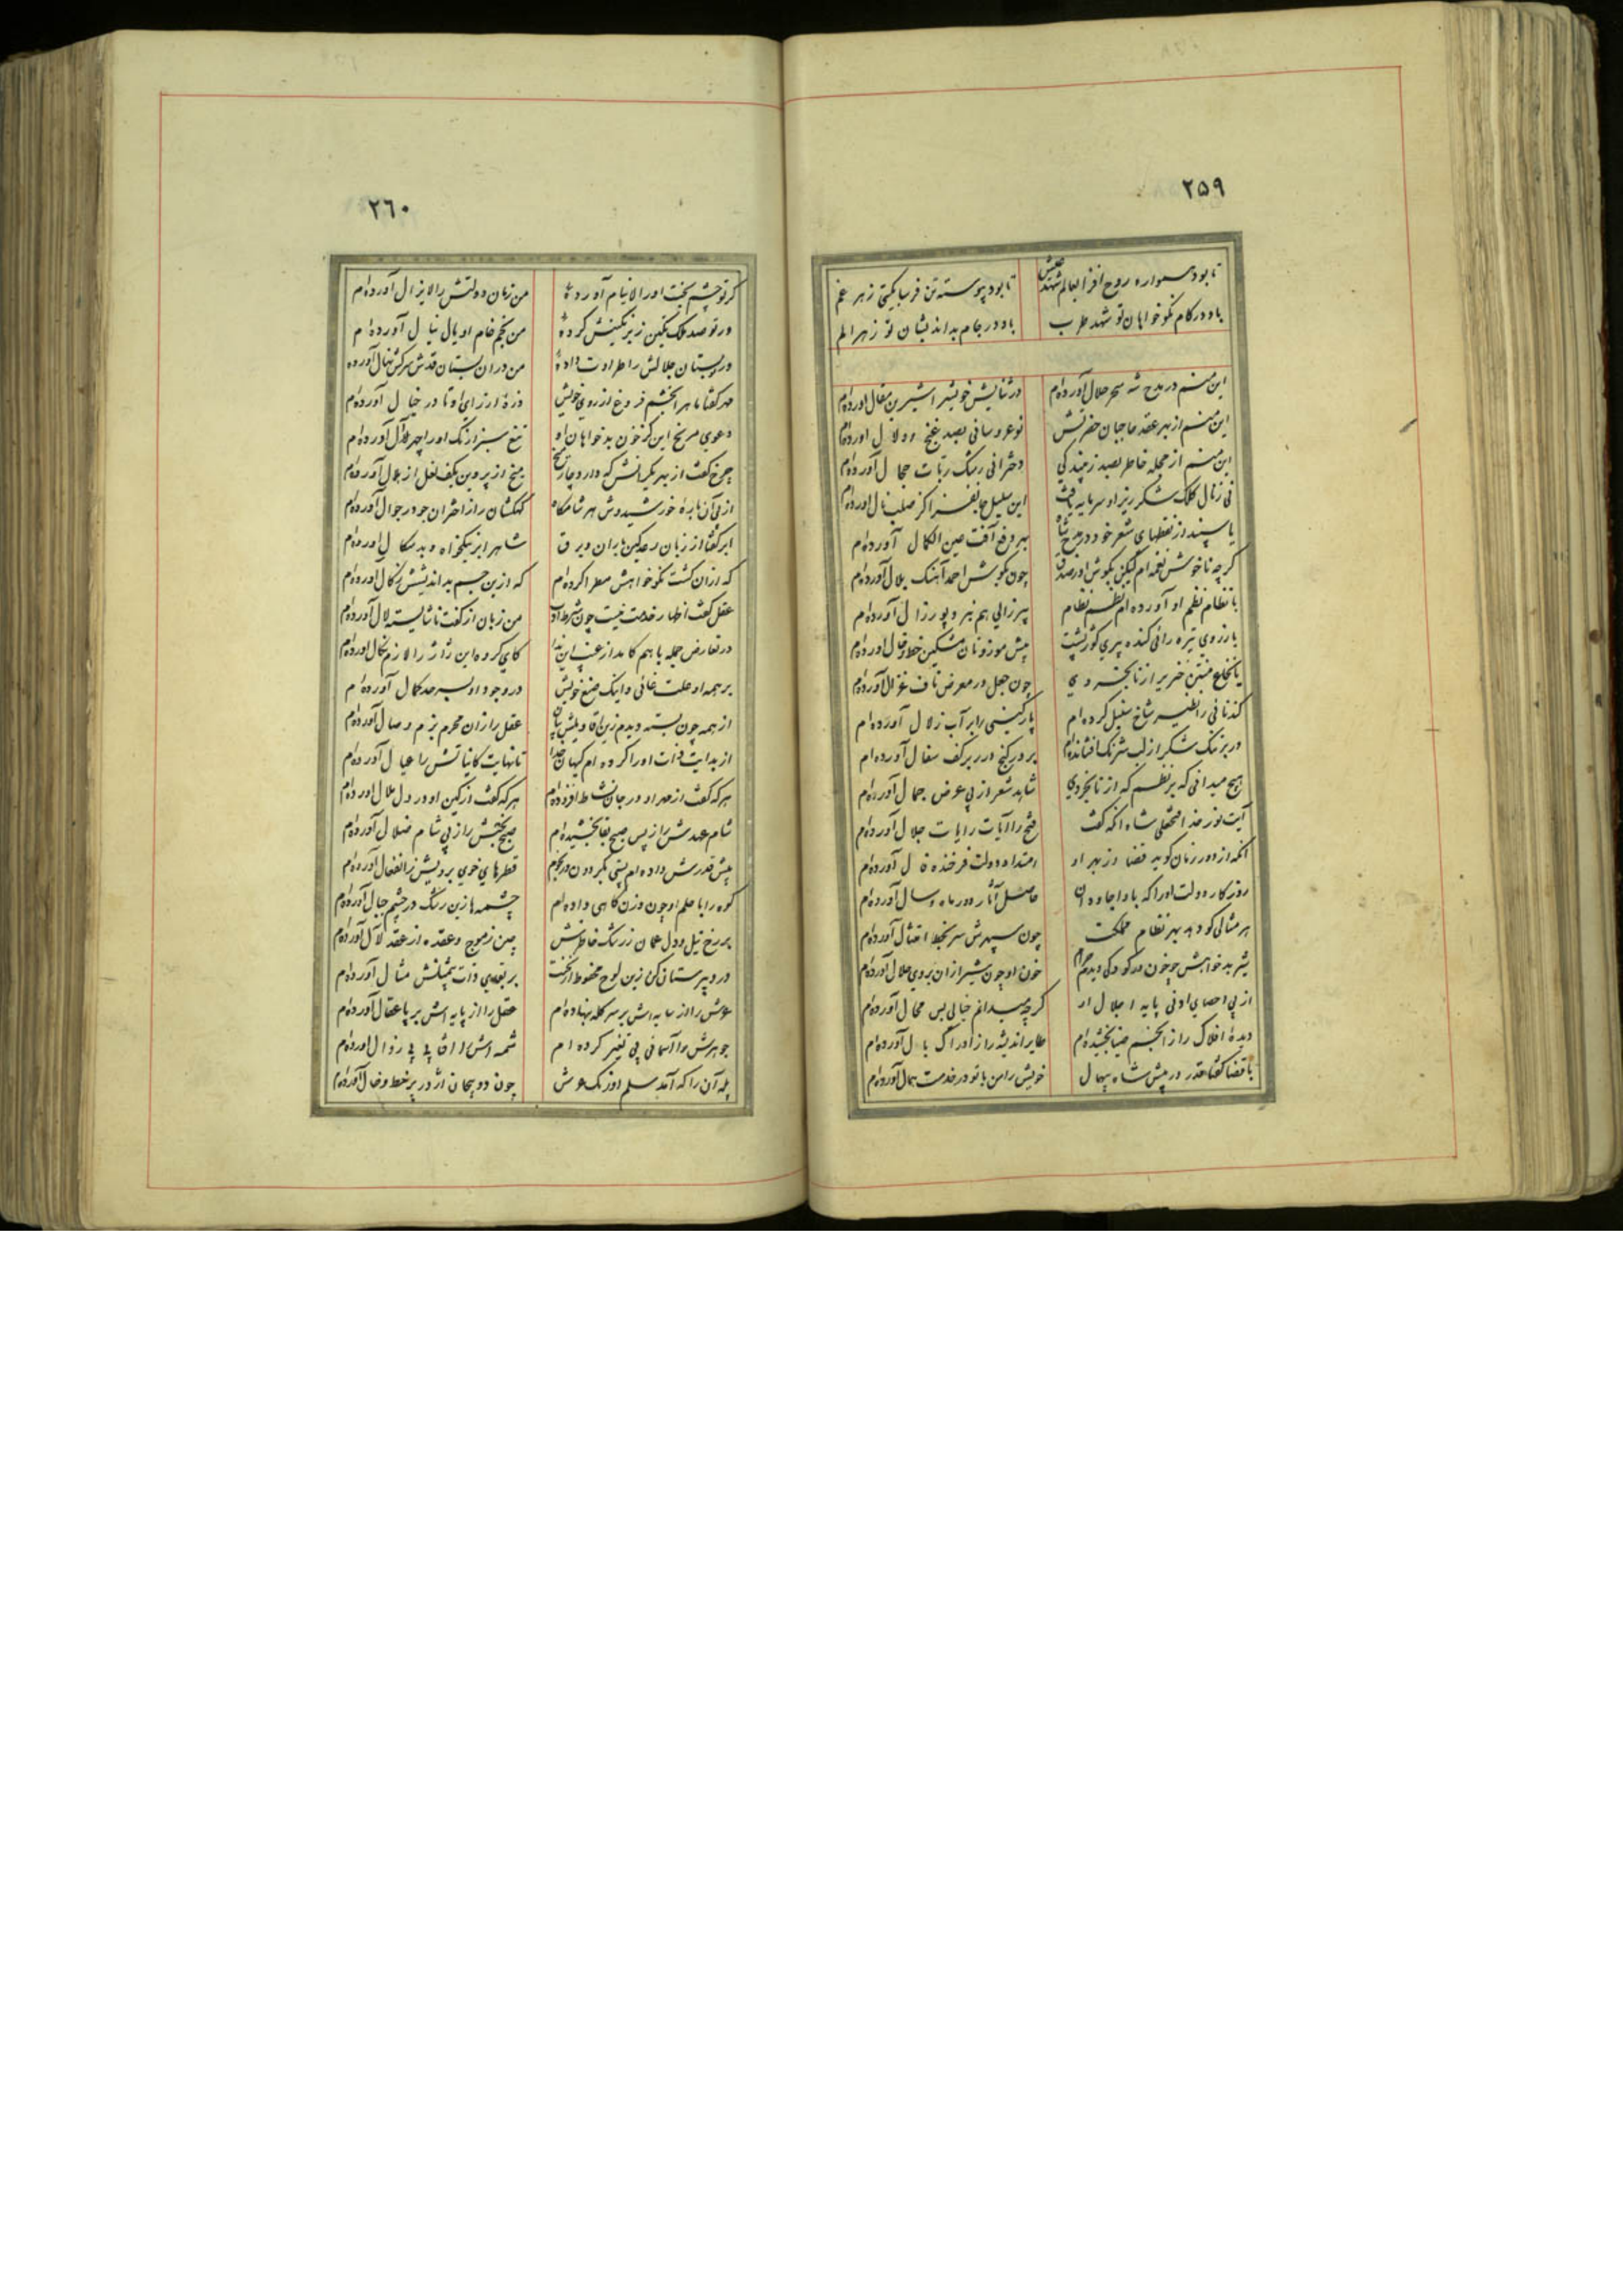 ۲۵۹
تا بود همواره روح افزا بعالم شهد عیش
تا بود پیوسته تن فرسا بگیتی زهر غم
باد در کام نکو خواهان تو شهد طرب
باد در جام بد اندیشان تو زهر الم
این منم در مدح شه سحر حلال آورده‌ام
در ثنایش خویش را شیرین مقال آورده‌ام
این منم از بهر عقد حاجبان حضرتش
نو عروسانی بصد غنج و دلال آورده‌ام
این منم از حجله خاطر بصد زیبندگی
دخترانی رشک ربات حجال آورده‌ام
نی ز نال کلک شکر ریز او سرمایه یافت
این سلسل جانفزا کز صلب نال آورده‌ام
یا سپند از نقطهای شعر خود در مدح شاه
بهر دفع آفت عین الکمال آورده‌ام
گرچه ناخوش نغمه‌ام لیکن بگوش اورصدق
چون بگوش احمد آهنگ بلال آورده‌ام
با نظام نظم او آورده‌ام نظم نظام
پیر زالی هم نبرد پور زال آورده‌ام
با رزوی تیره رانی گنده پیری گوژپشت
پیش موزونان مشکین خط و خال آورده‌ام
یا نخاع منتن خنزیر از نابخردی
چون جعل در معرض ناف غزال آورده‌ام
گندنائی را نظیر شاخ سنبل کرده‌ام
پارگینی را بر آب زلال آورده‌ام
در بر تنگ شکر از لب شرنگ افشانده‌ام
بر در گنج درر بر کف سفال آورده‌ام
هیچ میدانی که بر نظم که از نابخردی
شاهد شعر از پی عرض جمال آورده‌ام
آیت نور خدا شاه آنکه گفت
فتح را آیات رایات جلال آورده‌ام
آنکه از دور زمان گوید قضا کز بهر او
امتداد دولت فرخنده فال آورده‌ام
روزگار دولت او را که بادا جاودان
حاصل آثار دور ماه و سال آورده‌ام
هر مثالی کو دهد بهر نظام مملکت
چون سپهرش سر بخط امتثال آورده‌ام
شیر بدخواهش چو خون در کودکی دیدم حرام
خون او چون شیر از آن بروی حلال آورده‌ام
از پی احصای ادنی پایه اجلال او
گرچه میدانم خیالی بس محال آورده‌ام
دیده افلاک را از انجم ضیا بخشیده‌ام
طایر اندیشه را ز ادراک بال آورده‌ام
با قضا گفتا قدر در پیش شاه بیهمال
خویش را من با تو در خدمت همال آورده‌ام
۲٦۰
گر تو چشم بخت او را لاینام آورده‌ٔ
من زمان دولتش را لایزال آورده‌ام
ور تو صد ملک نگین زیر نگینش کرده‌ٔ
من نجم خام او یال نیال آورده‌ام
ور تو بستان جلالش را طراوت داده‌ٔ
من در آن بستان قدش سرکش نهال آورده
مهر گفتا ماهر انجم فروغ از روی خویش
ذره از رای او تا در خیال آورده‌ام
دعوی مریخ این کز خون بدخواهان او
تیغ سبز ارنگ او را چهر آل آورده‌ام
چرخ گفت از بهر یکرانش که دارد چار نعل
میخ از پروین بکف نعل از هلال آورده‌ام
از پی آن باره خورشیدوش هر شامگاه
کهکشان را از اختران جو در جوال آورده‌ام
ابر گفتا از زبان رعد کین باران و برق
شاهرا بر نیکخواه و بدسگال آورده‌ام
که از آن کشت نکوخواهش مطرا کرده‌ام
که از این جسم بداندیشش زگال آورده‌ام
عقل گفت اظهار خدمت نیست چون شرط ادب
من زبان از گفت ناشایسته لال آورده‌ام
در تعارض جمله با هم کامد از غیب این ندا
کای گروه این ژاژ را لازم نکال آورده‌ام
بر همه او علت غائی و اینک صنع خویش
در وجود او بسر حد کمال آورده‌ام
از همه چون بسته دیدم زین اقاویلش بیان
عقل را زان محرم بزم وصال آورده‌ام
از بدایت ذات او را کرده‌ام کیهان خدا
تا نهایت کایناتش را عیال آورده‌ام
هر که گفت از مهر او در جان نشاط افزوده‌ام
هر که گفت از کین او در دل ملال آورده‌ام
شام عهدش را ز پس صبح بقا بخشیده‌ام
صبح بختش را ز پی شام ضلال آورده‌ام
پیش قدرش داده‌ام پستی بگردون در نجوم
قطرهای خوی برویش ز انفعال آورده‌ام
کوه را با حلم او چون وزن کاهی داده‌ام
چشمه‌ها زین رشک در چشم جبال آورده‌ام
بر رخ نیل و دل عمان ز رشک خاطرش
چین ز موج و عقده از عقد لآل آورده‌ام
در دبیرستان کن زین لوح محفوظ از نخست
بر نقش ذات بیمثلش مثال آورده‌ام
عرش را از سایه‌اش بر سر کله بنهاده‌ام
عقل را از پایه‌اش بر پا عقال آورده‌ام
جوهرش را آسمانی بی تغیر کرده‌ام
شمسه‌اش را آفتابی بی زوال آورده‌ام
پله آن را که آمد سلم اورنگ عرش
چون دو پیچان اژدر پر خط و خال آورده‌ام